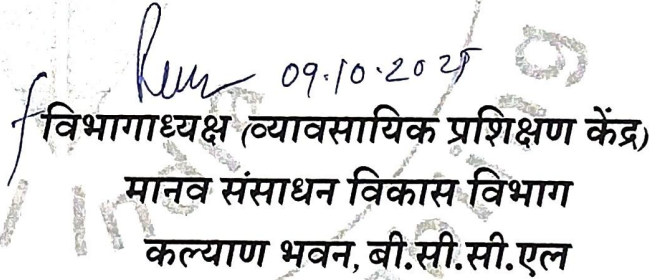 09.10.2025
विभागाध्यक्ष (व्यावसायिक प्रशिक्षण केंद्र)
मानव संसाधन विकास विभाग
कल्याण भवन, बी.सी.सी.एल